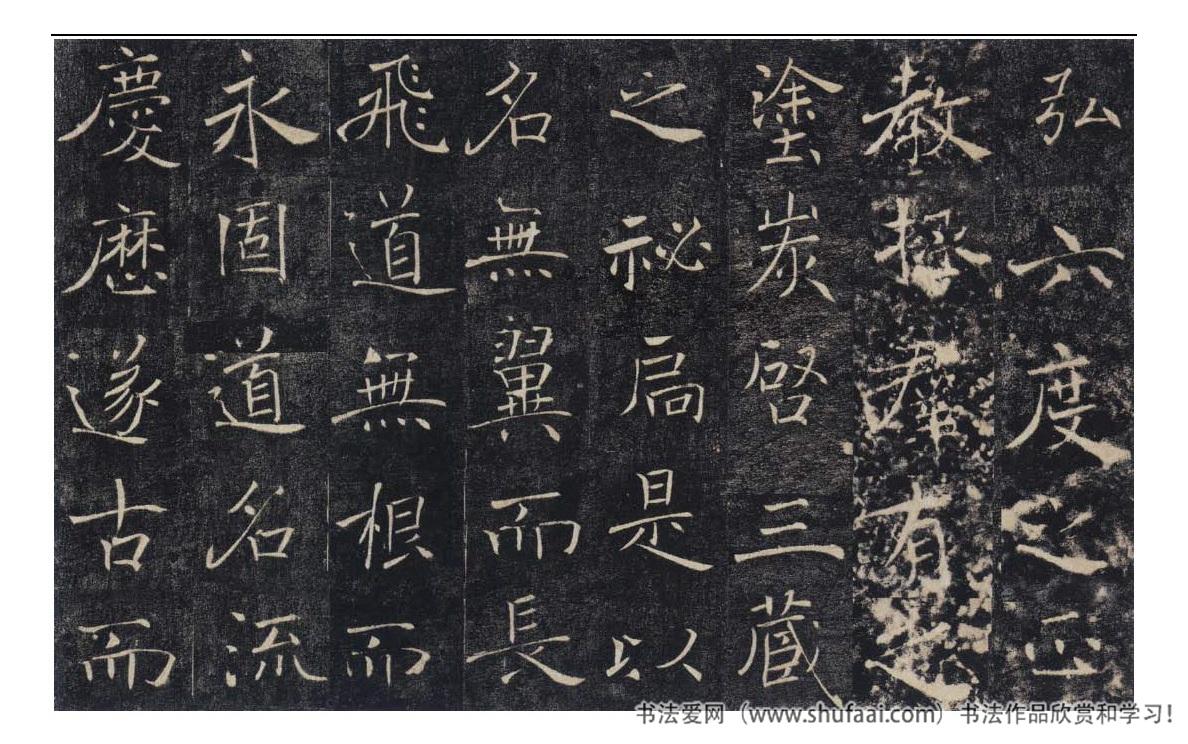 弘六度之正
教拯群有之
塗炭啓三藏
之祕扃是以
名無翼而長
飛道無根而
永固道名流
慶歷遂古而
书法爱网（www.shufaai.com）书法作品欣赏和学习！